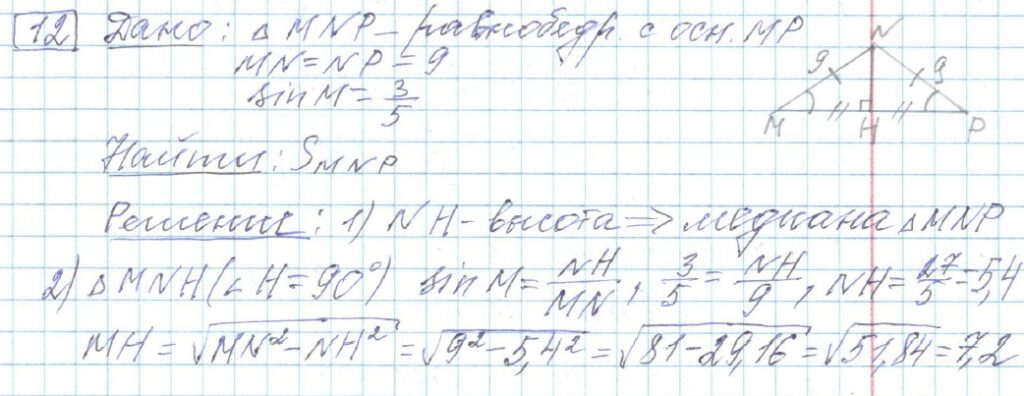 12 Дано: △MNP – равнобедр. с осн. MP
MN = NP = 9
sin M = 3/5
Найти: S MNP
Решение: 1) NH – высота ⇒ медиана △MNP
2) △MNH (∠H = 90°) sin M = NH/MN, 3/5 = NH/9, NH = 27/5 = 5,4
MH = √(MN² – NH²) = √(9² – 5,4²) = √(81 – 29,16) = √51,84 = 7,2
N
9 9
M H P